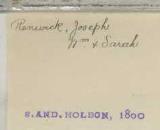 Renwick, Joseph
Wm & Sarah
S. AND. HOLBON, 1800